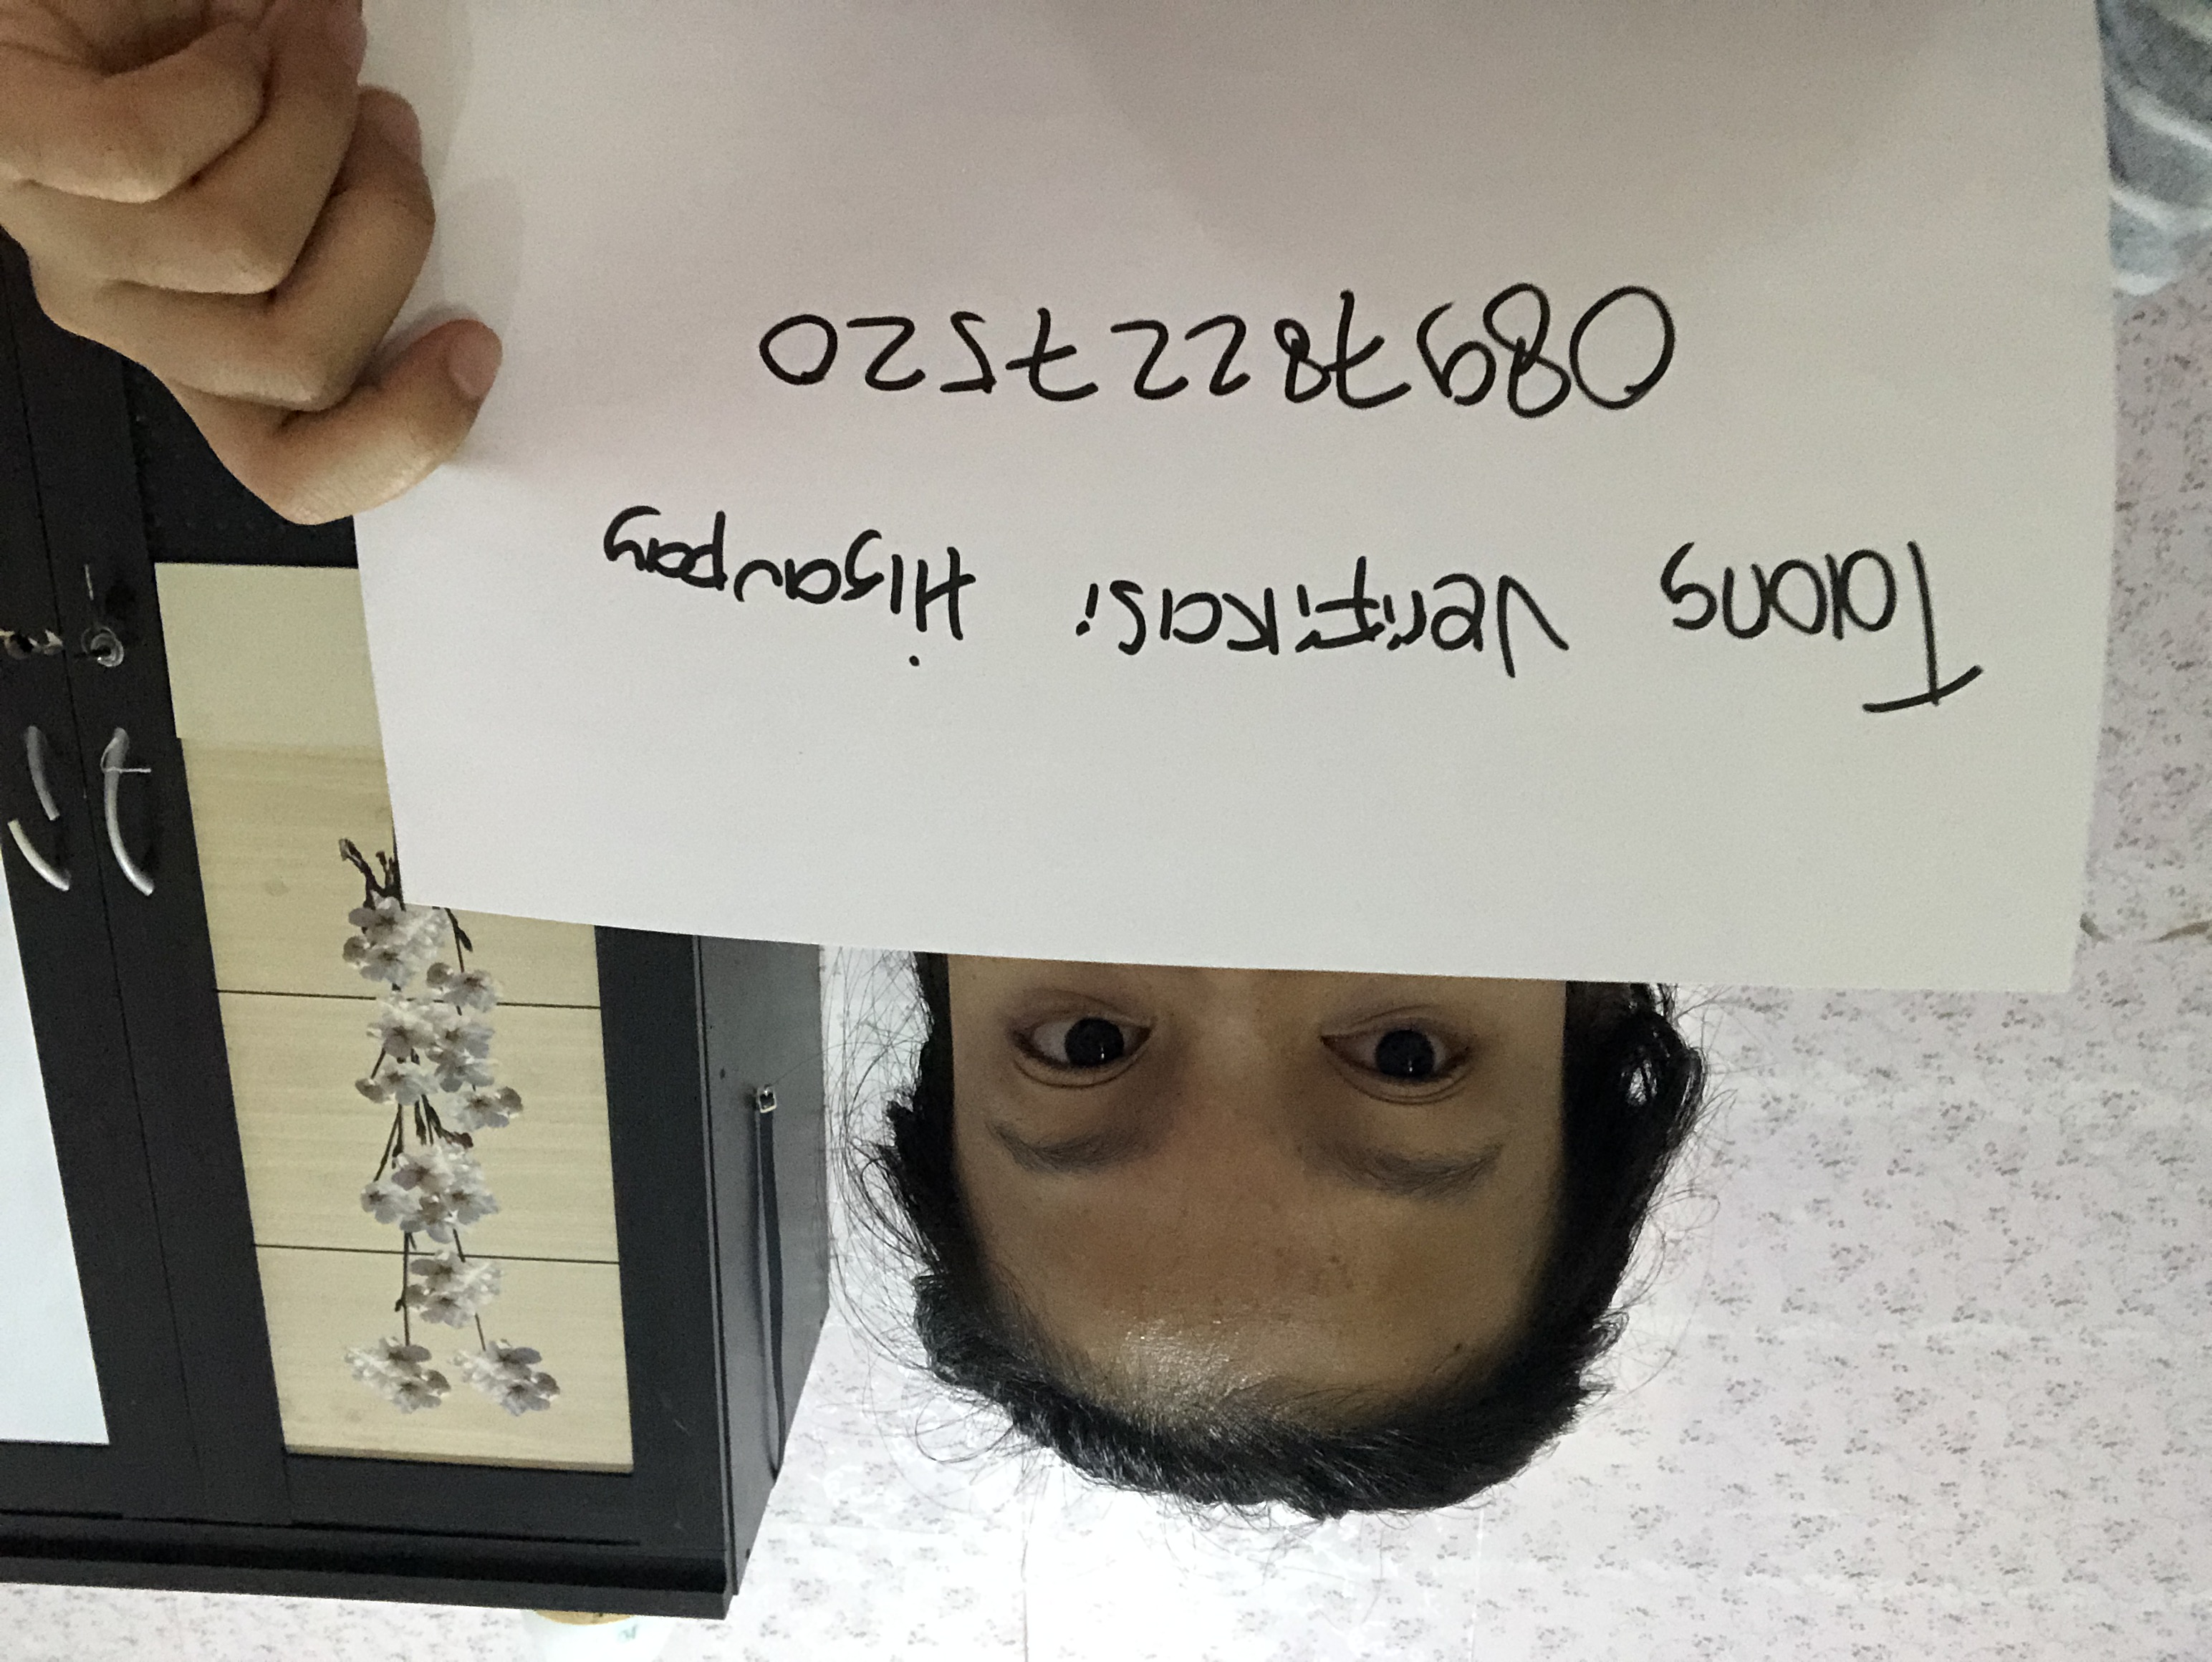 Tolong Verifikasi Higaupay
08978227520